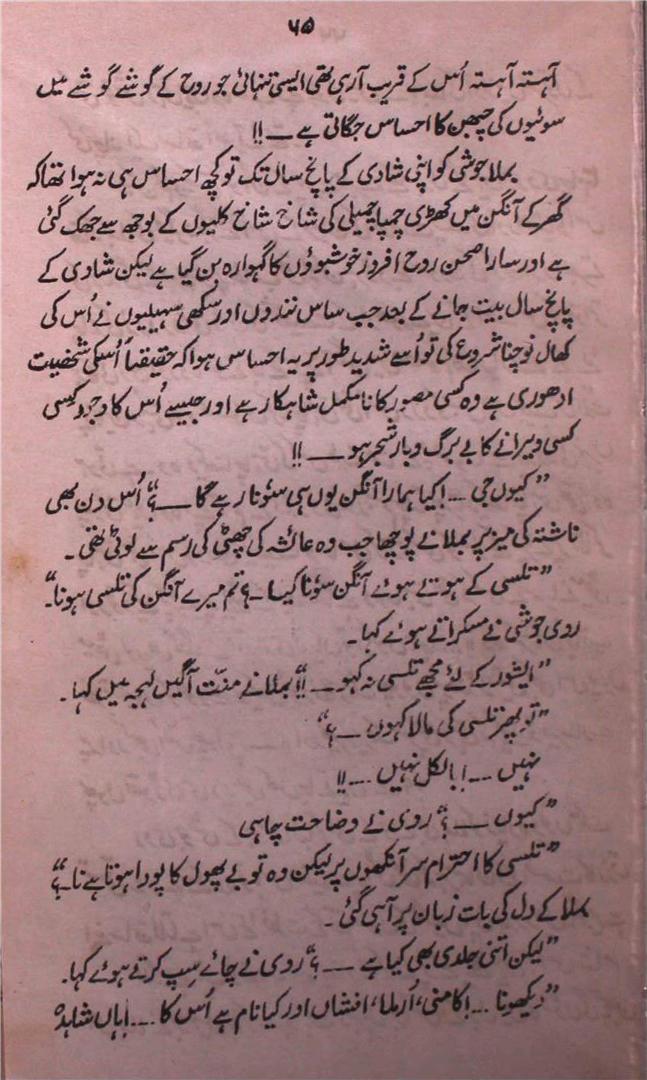 ۶۵
آہستہ آہستہ اُس کے قریب آ رہی تھی ایسی تنہائی جو روح کے گوشے گوشے میں
سوئیوں کی چبھن کا احساس جگاتی ہے ــ !!
بملا جوشی کو اپنی شادی کے پانچ سال تک تو کچھ احساس ہی نہ ہوا تھا کہ
گھر کے آنگن میں کھڑی چمپا چمیلی کی شاخ شاخ کلیوں کے بوجھ سے جھک گئی
ہے اور سارا صحن روح افروز خوشبوؤں کا گہوارہ بن گیا ہے لیکن شادی کے
پانچ سال بیت جانے کے بعد جب ساس نندوں اور سکھی سہیلیوں نے اُس کی
کھال نوچنا شروع کی تو اُسے شدید طور پر یہ احساس ہوا کہ حقیقتاً اُسکی شخصیت
ادھوری ہے وہ کسی مصور کا نامکمل شاہکار ہے اور جیسے اُس کا وجود کسی
کسی ویرانے کا بے برگ و بار شجر ہو ـــ !!
”کیوں جی ... ! کیا ہمارا آنگن یوں ہی سُونا رہے گا ــ ؟“ اُس دن بھی
ناشتہ کی میز پر بملا نے پوچھا جب وہ عائشہ کی چھٹی کی رسم سے لوٹی تھی ۔
”تلسی کے ہوتے ہوئے آنگن سُونا کیسا ۔ ؟ تم میرے آنگن کی تلسی ہونا۔“
روی جوشی نے مسکراتے ہوئے کہا ۔
”ایشور کے لئے مجھے تلسی نہ کہو ــ !!“ بملا نے منّت آگیں لہجہ میں کہا ۔
”تو پھر تلسی کی مالا کہوں ــ ؟“
نہیں ... ! بالکل نہیں ... !!
”کیوں ــ ؟“ روی نے وضاحت چاہی
”تلسی کا احترام سر آنکھوں پر لیکن وہ تو بے پھول کا پودا ہوتا ہے نا ۔ ؟“
بملا کے دل کی بات زبان پر آہی گئی ۔
”لیکن اتنی جلدی بھی کیا ہے ــ ؟“ روی نے چائے سِپ کرتے ہوئے کہا ۔
”دیکھونا ... ! کامنی، اُرملا، افشاں اور کیا نام ہے اُس کا ... ! ہاں شاہدہ